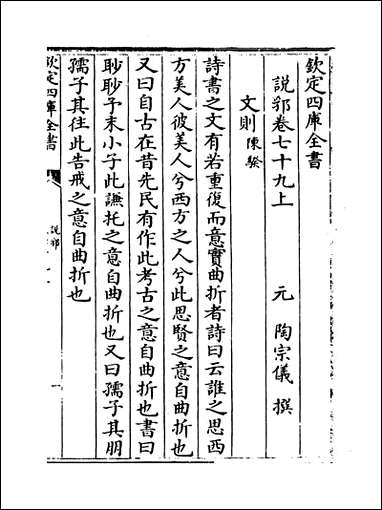 欽定四庫全書
說郛卷七十九上
元 陶宗儀 撰
文則 陳騤
詩書之文有若重復而意實曲折者詩曰云誰之思西
方美人彼美人兮西方之人兮此思賢之意自曲折也
又曰自古在昔先民有作此考古之意自曲折也書曰
眇眇予末小子此謙托之意自曲折也又曰孺子其朋
孺子其往此告戒之意自曲折也
欽定四庫全書
說郛
一